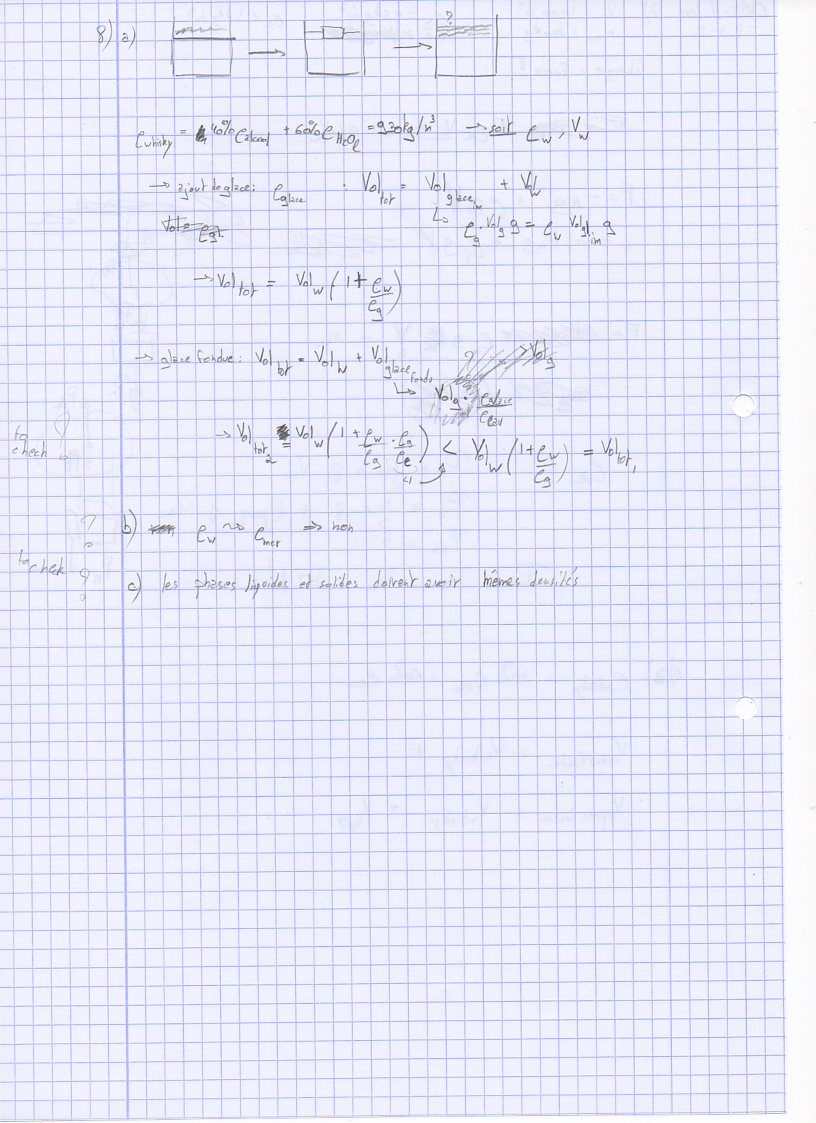 8) a)
?
ρ_whisky = 40% ρ_alcool + 60% ρ_H2Ol = 920 kg/m³ → soit ρ_w, V_w
→ ajout de glace: ρ_glace : Vol_tot = Vol_glace_im + V_w
↳ ρ_g · Vol_g g = ρ_w Vol_g_im g
→ Vol_tot = Vol_w (1 + ρ_w/ρ_g)
→ glace fondue: Vol_tot = Vol_w + Vol_glace_fondue
? → Vol_g
↳ Vol_g · ρ_glace/ρ_eau
to check ?
→ Vol_tot_2 = Vol_w (1 + ρ_w/ρ_g · ρ_g/ρ_e) < Vol_w (1 + ρ_w/ρ_g) = Vol_tot_1
<1
? b) ρ_w ~> ρ_mer ⇒ non
to chek ?
c) les phases liquides et solides doivent avoir mêmes densités